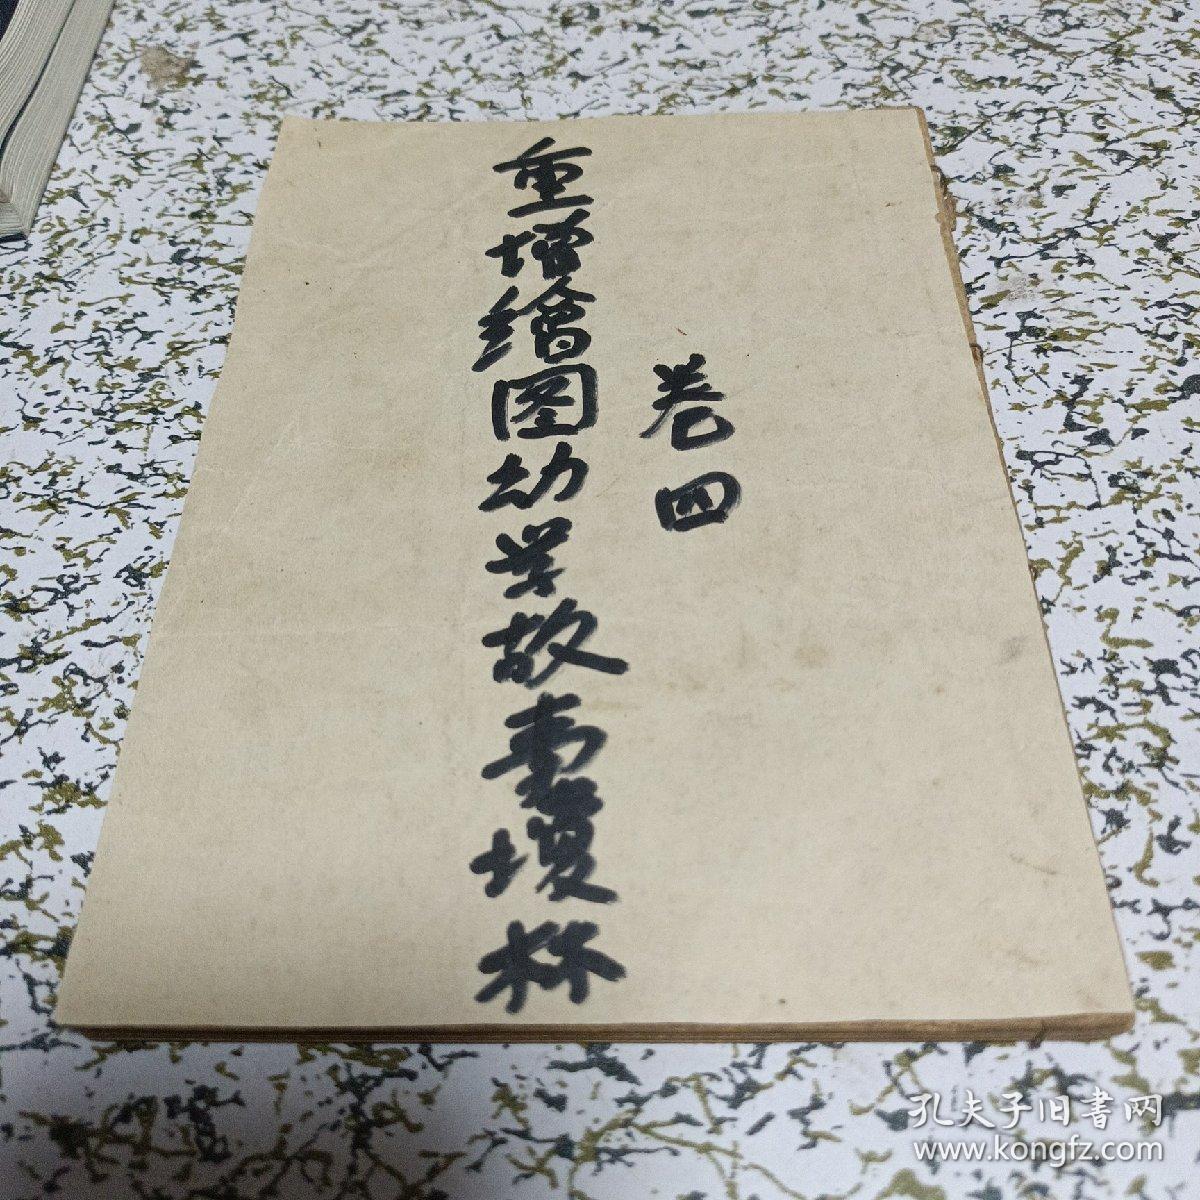 卷四
重增繪图幼学故事瓊林
孔夫子旧書网
www.kongfz.com